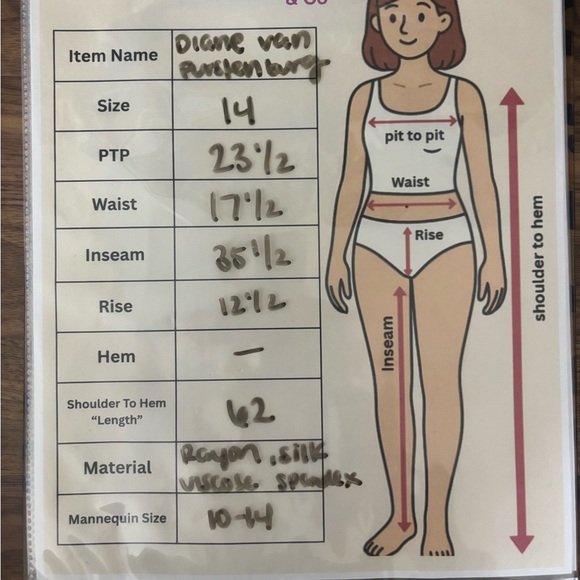 & Co
Item Name Diane van
Furstenburg
Size 14
PTP 23 1/2
Waist 17 1/2
Inseam 35 1/2
Rise 12 1/2
Hem —
Shoulder To Hem
“Length” 62
Material Rayon, silk
viscose spandex
Mannequin Size 10-14
pit to pit
Waist
Rise
Inseam
shoulder to hem